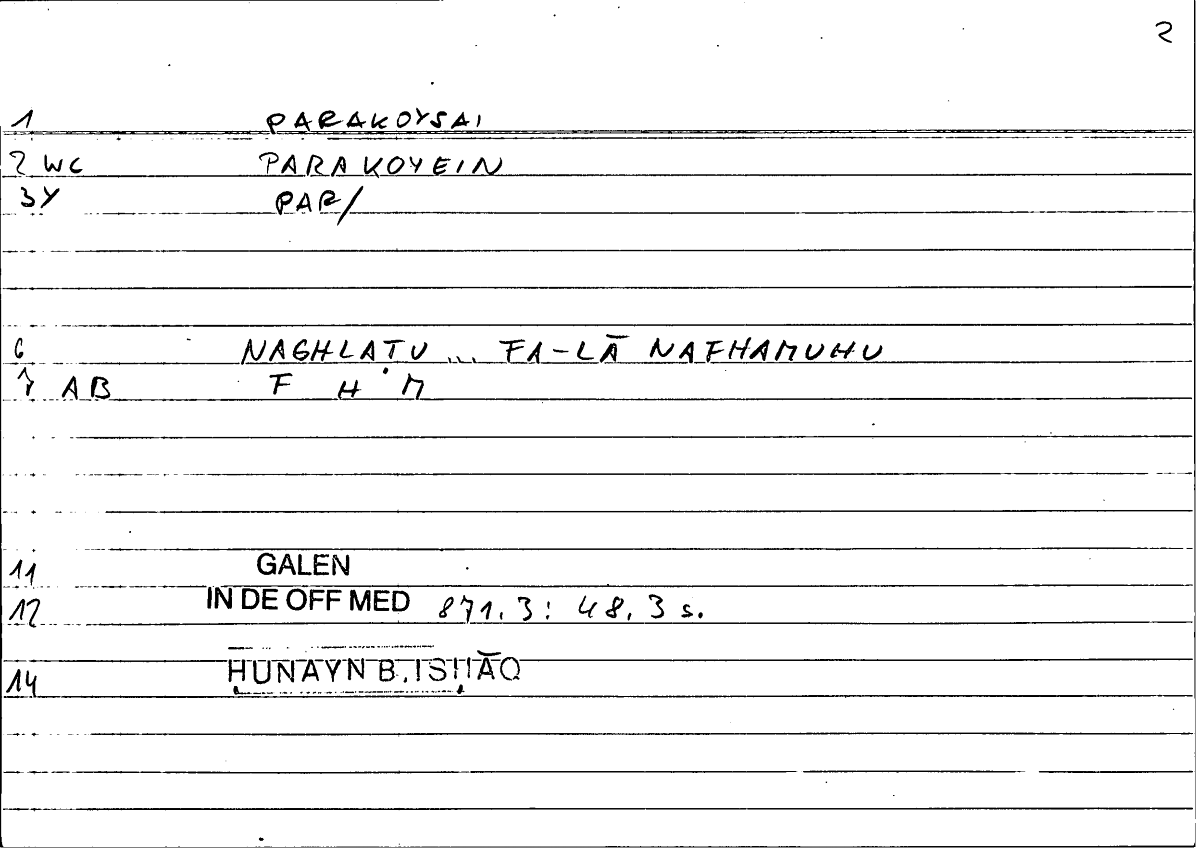 2
1 PARAKOYSAI
2 WC PARAKOYEIN
3Y PAR/
6 NAGHLAṬU ... FA-LĀ NAFHAMUHU
7 AB F H M
11 GALEN
12 IN DE OFF MED 871.3: 48.3 s.
14 ḤUNAYN B. ISḤĀQ